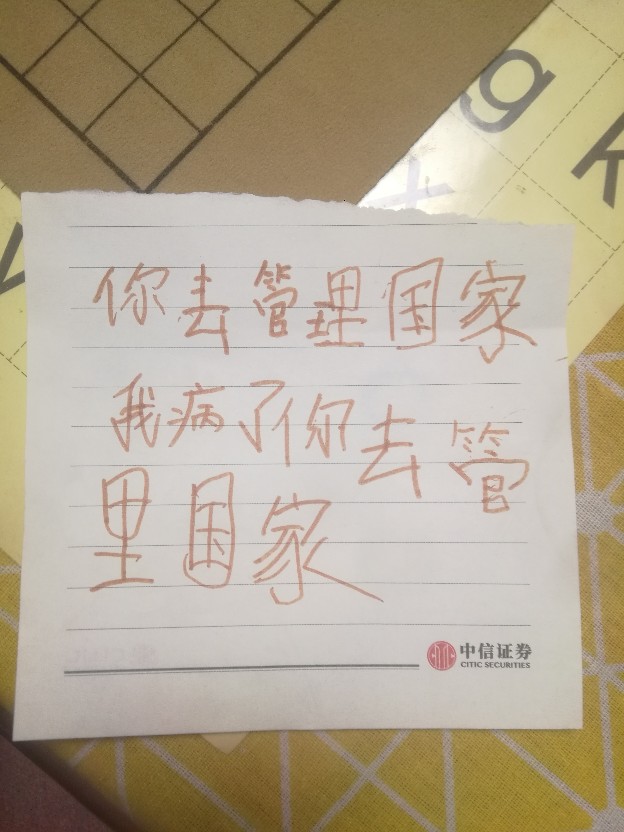 g
k
你去管理国家
我病了你去管
里国家
中信证券
CITIC SECURITIES